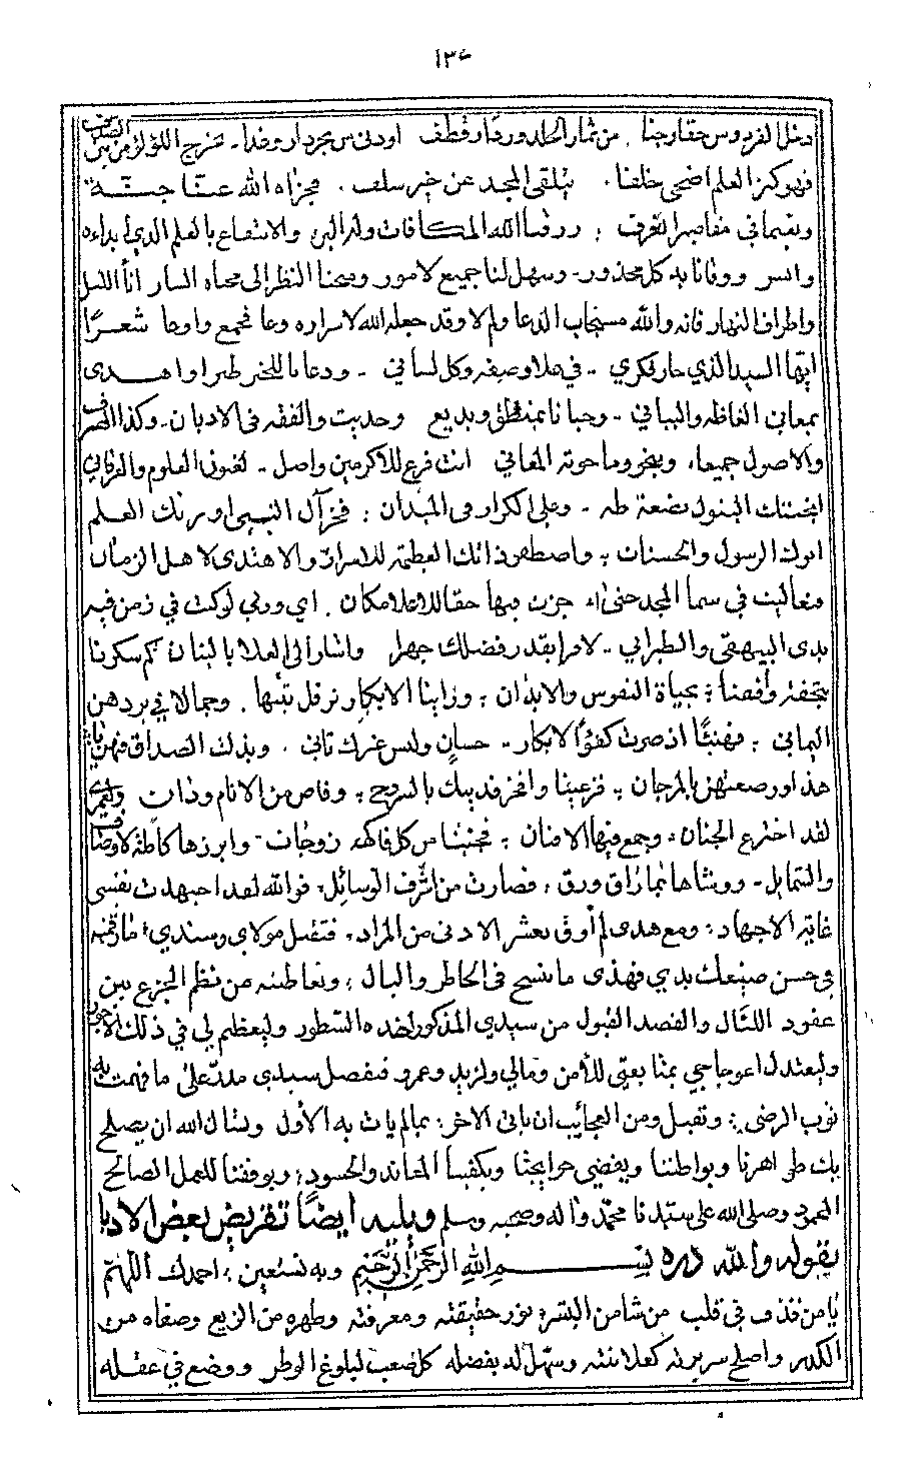 ١٣٤
دخل الفردوس حقا وجنا من ثمار الخلد ورد اوقطف او دنى من بحر دار وغدا يخرج اللؤلؤ من بين الصدف
فهو كنز العلم اضحى خلفا يتلقى المجد عن خير سلف فجزاه الله عنا جنة
ونعيما في مقاصير الغرف رزقنا الله المكافات ولزائرين والانتفاع بالعلم الذي ابداه
وانسر ووقانا به كل محذور وسهل لنا جميع الامور ومنحنا النظر الى محياه السار اناء الليل
واطراف النهار فانه والله مستجاب الدعا ولم لا وقد جعله الله لاسراره وعا فجمع واوعا شعرًا
ايها السيد الذي حار فكري في علا وصفه وكل لساني ودعانا للخير طرا واهدى
بمعاني الفاظه والبياني وحبانا بمنطق وبديع وحديث والفقه في الاديان وكذا الصرف
والاصول جميعا ونحو وما حوته المعاني انت فرع للاكرمين واصل لفنون العلوم والفرقان
انجبتك البتول بضعة طه وعلي الكرار في الميدان فخر آل النبي اورثك العلم
ابوك الرسول والحسنات واصطفى ذاتك العظيم للاسرار والاهتدى لاهل الزمان
فتعاليت في سما المجد حتى حزت فيها حقا للاعلا مكان اي وربي لو كنت في زمن فيه
بدى البيهقي والطبراني لاقرا بقدر فضلك جهرا واشارا الى العلا بالبنان كم سكرنا
بتحفة وافقنا بحياة النفوس والابدان وراينا الابكار ترفل تيها وجمالا في بردهن
اليماني فهنيئًا اذ صرت كفؤ الابكار حسان وليس غيرك ثاني وبذلت الصداق فيهن يا
هذا ورصعتهن بالمرجان
لقد اخترع الجنان وجمع فيها الافنان فجنينا من كل فاكهة زوجان وابرزها كاملة الاوصاف
والشمايل ووشاها بما راق ورق فصارت من اشرف الوسائل فوالله لقد اجهدت نفسي
غاية الاجهاد ومع هدى لم أوف بعشر الادنى من المراد فتقبل مولاي وسندي ما رقمته
في حسن صنيعك يدي فهذى ما نسج في الخاطر والبال وتعاطيته من نظم الجزع بين
عقود اللئال والقصد القبول من سيدي المذكور لهذه السطور وليعظم لي في ذلك الاجور
وليعتدل اعوجاجي بمنا يعتى للأمن ومالي ولزيد وعمرو فبفضل سيدي مدد على ما فهمت به
ثوب الرضى وتقبل ومن العجايب ان ياتي الاخر بما لم يات به الأول ونسال الله ان يصلح
بك ظواهرنا وبواطننا ويقضي حوايجنا ويكفينا المعاند والحسود ويوفقنا للعمل الصالح
المحمود وصلى الله على سيدنا محمد وآله وصحبه وسلم ويليه ايضًا تقريض بعض الادبا
بقوله ولله دره بسم الله الرحمن الرحيم وبه نستعين احمدك اللهم
يا من قذف في قلب من شا من البشر نور حقيقته ومعرفته وطهره من الزيغ وصفاه من
الكدر واصلح سريرته كعلانيته وسهل له بفضله كل صعب لبلوغ الوطر ووضع في عقله